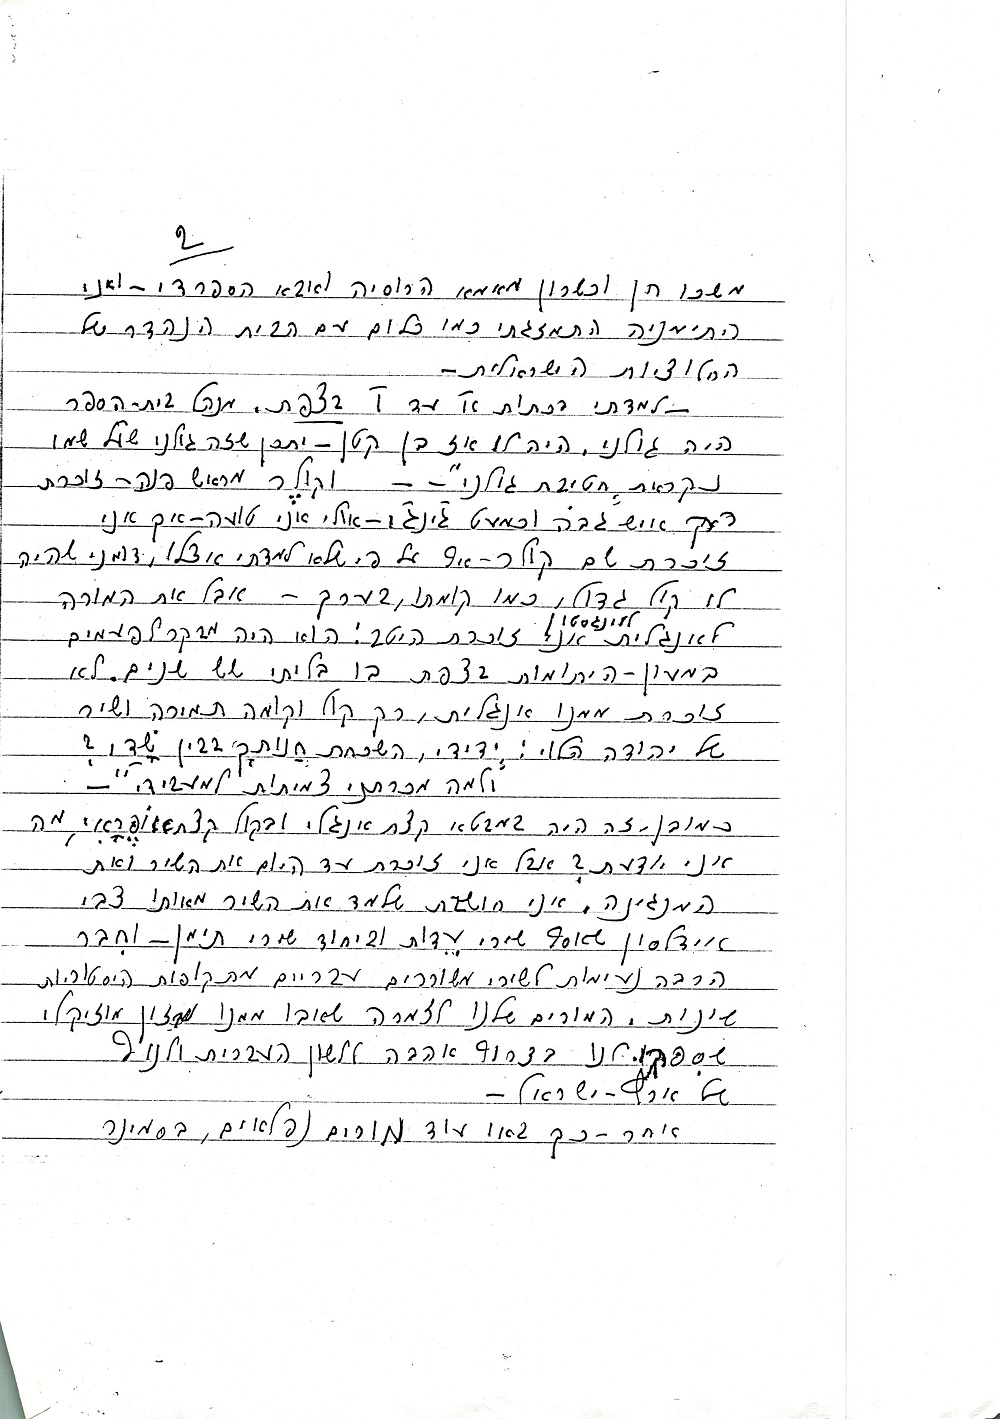 2
משכו חן וכשרון מאימא הרוסיה לאבא הספרדי – ואני
התימניה התמזגתי כמו כלום עם הבית הנהדר של
החלוציות הישראלית –
– למדתי בכתות א' עד ד' בצפת. מנהל בית-הספר
היה גולני. היה לו אז בן קטן – יתכן שזה גולני שעל שמו
נקראת "חטיבת גולני" – – וקולר מראש פנה – זוכרת
רק איש גבה וכמעט ג'ינג'י – אולי אני טועה – אך אני
זוכרת שם קולר – אף על פי שלא למדתי אצלו, דומני שהיה
לו קול גדול, כמו קומתו, בערך – אבל את המורה
לאנגלית לוינגסטון אני זוכרת היטב! הוא היה מבקר לפעמים
במעון-היתומות בצפת בו בליתי שש שנים. לא
זוכרת ממנו אנגלית, רק קול וקומה תמירה ושיר
של יהודה הלוי: "ידידי, השכחת חנותך בבין שדי?
ולמה מכרתני צמיתות למעבידי" –
כמובן – זה היה במבטא קצת אנגלי ובקול קצת אופראי, מה
אני יודעת? אבל אני זוכרת עד היום את השיר ואת
המנגינה. אני חושבת שלמד את השיר מאותו צבי
איידלסון שאסף שירי עדות וביחוד שירי תימן – וחבר
הרבה נעימות לשירי משוררים עבריים מתקופות היסטוריות
שונות. המורים שלנו לזמרה שאבו ממנו מזון מוזיקלי
שספקו לנו בצרוף אהבה ללשון העברית ולנוף
של ארץ-ישראל –
אחר-כך באו עוד מורים נפלאים, בסמינר